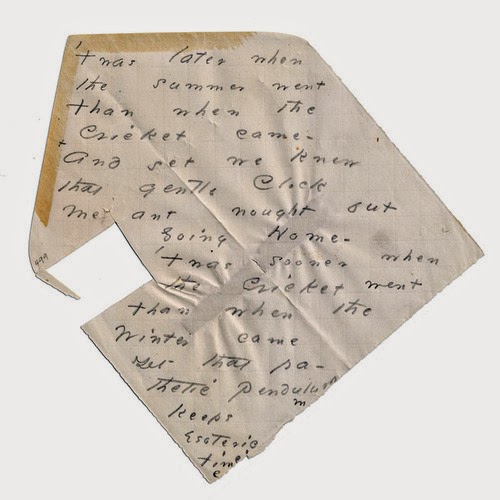 'twas later when
the summer went
Than when the
Cricket came -
And yet we knew
that gentle Clock
meant nought but
Going Home -
'Twas sooner when
the Cricket went
Than when the
Winter came
Yet that pa-
thetic Pendulum
Keeps
Esoteric
time
499